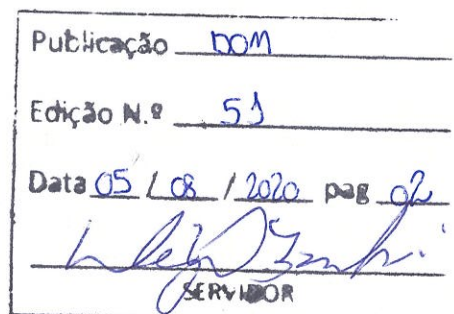 Publicação DOM
Edição N.º 51
Data 05 / 08 / 2020 pag 02
SERVIDOR